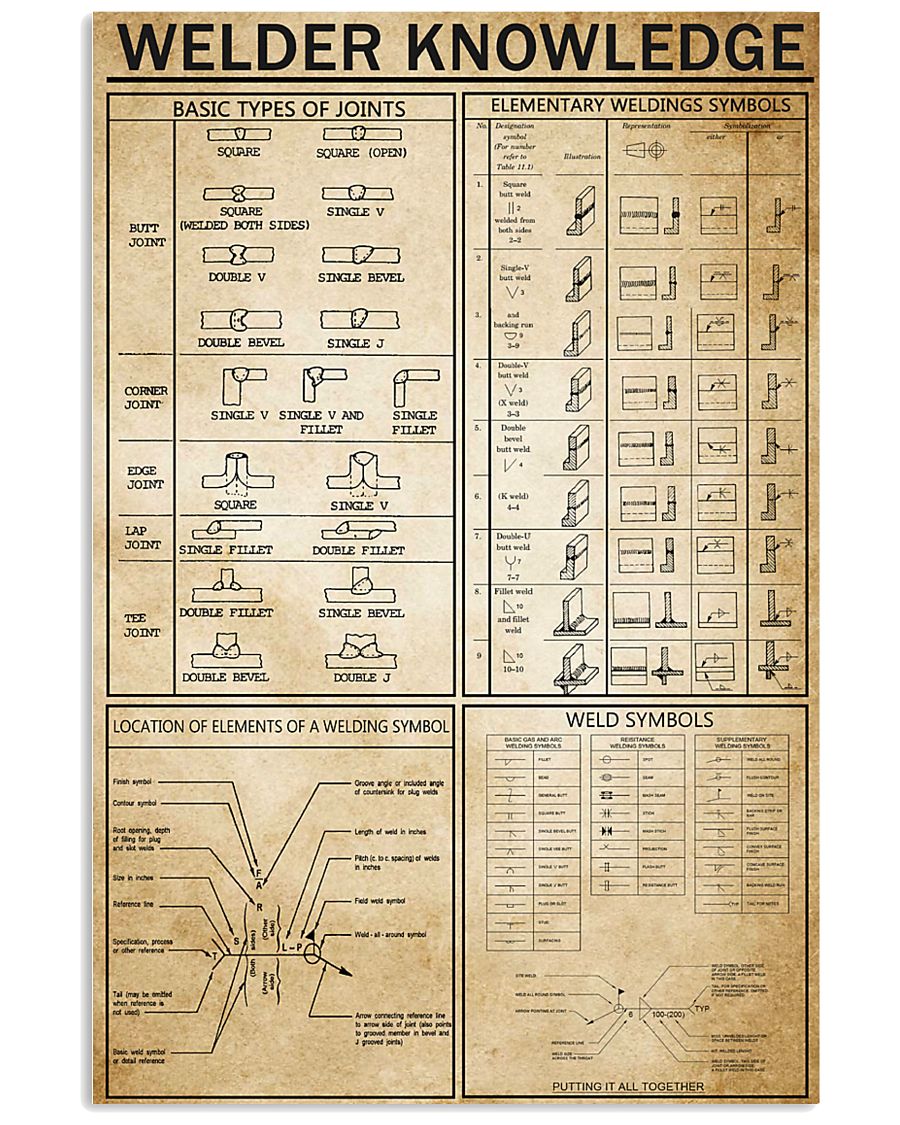 WELDER KNOWLEDGE
BASIC TYPES OF JOINTS
BUTT
JOINT
SQUARE
SQUARE (OPEN)
SQUARE
(WELDED BOTH SIDES)
SINGLE V
DOUBLE V
SINGLE BEVEL
DOUBLE BEVEL
SINGLE J
CORNER
JOINT
SINGLE V
SINGLE V AND
FILLET
SINGLE
FILLET
EDGE
JOINT
SQUARE
SINGLE V
LAP
JOINT
SINGLE FILLET
DOUBLE FILLET
TEE
JOINT
DOUBLE FILLET
SINGLE BEVEL
DOUBLE BEVEL
DOUBLE J
ELEMENTARY WELDINGS SYMBOLS
No.
Designation
symbol
(For number
refer to
Table 11.1)
Illustration
Representation
Symbolization
either
or
1.
Square
butt weld
2
welded from
both sides
2-2
2.
Single-V
butt weld
3
3.
and
backing run
9
3-9
4.
Double-V
butt weld
3
(X weld)
3-3
5.
Double
bevel
butt weld
4
6.
(K weld)
4-4
7.
Double-U
butt weld
7
7-7
8.
Fillet weld
10
and fillet
weld
9
10
10-10
LOCATION OF ELEMENTS OF A WELDING SYMBOL
Finish symbol
Contour symbol
Root opening, depth
of filling for plug
and slot welds
Size in inches
Reference line
Specification, process
or other reference
Tail (may be omitted
when reference is
not used)
Basic weld symbol
or detail reference
Groove angle or included angle
of countersink for plug welds
Length of weld in inches
Pitch (c. to c. spacing) of welds
in inches
Field weld symbol
Weld - all - around symbol
Arrow connecting reference line
to arrow side of joint (also points
to grooved member in bevel and
J grooved joints)
F
A
R
S
T
L-P
(Both
sides)
(Other
side)
(Arrow
side)
WELD SYMBOLS
BASIC GAS AND ARC
WELDING SYMBOLS
FILLET
BEAD
GENERAL BUTT
SQUARE BUTT
SINGLE BEVEL BUTT
SINGLE VEE BUTT
SINGLE 'U' BUTT
SINGLE 'J' BUTT
PLUG OR SLOT
STUD
SURFACING
REISITANCE
WELDING SYMBOLS
SPOT
SEAM
MASH SEAM
STICH
MASH STICH
PROJECTION
FLASH BUTT
RESISTANCE BUTT
SUPPLEMENTARY
WELDING SYMBOLS
WELD ALL ROUND
FLUSH CONTOUR
WELD ON SITE
BACKING STRIP OR
BAR
FLUSH SURFACE
FINISH
CONVEX SURFACE
FINISH
CONCAVE SURFACE
FINISH
BACKING WELD RUN
TYP
TAIL FOR NOTES
SITE WELD
WELD ALL ROUND SYMBOL
ARROW POINTING AT JOINT
REFERENCE LINE
WELD SIZE
ACROSS THE THROAT
WELD SYMBOL, OTHER SIDE
OF JOINT OR OPPOSITE
ARROW SIDE. A FILLET WELD
IN THIS CASE
TAIL, FOR SPECIFICATION OR
OTHER REFERENCE. OMITTED
IF NOT REQUIRED.
6
100-(200)
TYP
UNWELDED LENGHT OR
SPACE BETWEEN WELDS
WELDED LENGHT
WELD SYMBOL, THIS SIDE
OF JOINT OR ARROW SIDE.
A FILLET WELD IN THIS CASE
PUTTING IT ALL TOGETHER